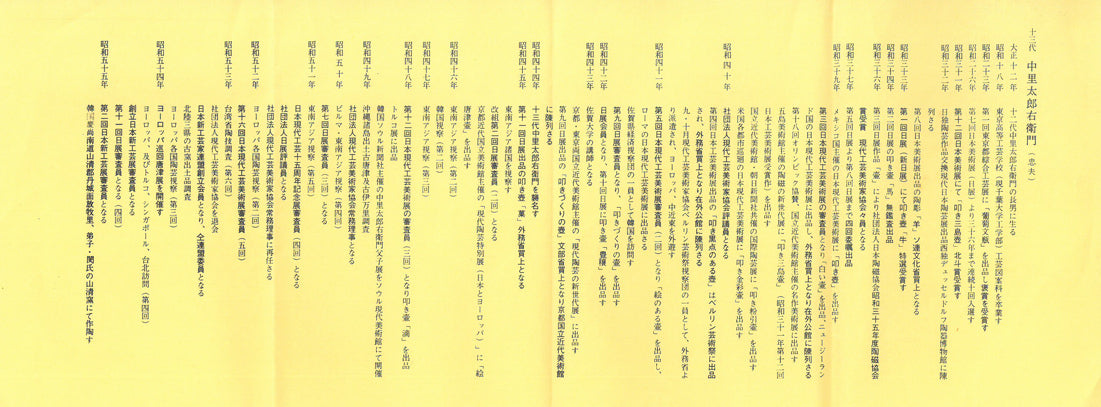 十三代 中里太郎右衛門（忠夫）
大正十二年 十二代中里太郎右衛門の長男に生る
昭和十八年 東京高等工芸学校（現千葉大学工学部）工芸図案科を卒業す
昭和二十三年 第一回東京都綜合工芸展に「葡萄文瓶」を出品し褒賞を受賞す
昭和二十六年 第七回日本美術展（日展）より三十六年まで連続十回入選す
昭和三十一年 第十二回日本美術展にて「叩き三島壺」北斗賞受賞す
昭和三十二年 日独陶芸作品交換現代日本陶芸展出品西独デュッセルドルフ陶器博物館に陳
列さる
第八回日本美術展出品の陶彫「羊」ソ連文化省買上となる
昭和三十三年 第一回展（新日展）にて叩き壺「牛」特選受賞す
昭和三十四年 第二回日展の叩き壺「馬」無鑑査出品
昭和三十六年 第三回日展作品「壺」により社団法人日本陶磁協会昭和三十五年度陶磁協会
賞受賞 現代工芸美術家協会々員となる
昭和三十七年 第五回日展より第八回日展まで四回委嘱出品
昭和三十九年 メキシコ国主催の日本現代工芸美術展に「叩き壺」を出品す
第三回日本現代工芸美術展の審査員となり「白い壺」を出品、ニュージーラン
ドの国の買上となり在外公館に陳列さる
第十八回オリンピック協賛、国立近代美術館主催の名作美術展に出品す
五島美術館主催の陶磁の新世代展に「叩き三島壺」（昭和三十一年第十二回
日本工芸美術展受賞作）を出品す
国立近代美術館・朝日新聞社共催の国際陶芸展に「叩き粉引壺」を出品す
米国各都市巡廻の日本現代工芸美術展に「叩き金彩壺」を出品す
昭和四十年 第四回日本工芸美術展出品の「叩き黒点のある壺」はベルリン芸術祭に出品
され、外務省買上となり在外公館に陳列さる
社団法人現代工芸美術家協会評議員となる
九・十月現代工芸美術家協会ベルリン芸術祭視察団の一員として、外務省よ
り派遣され、ヨーロッパ、中近東を外遊す
昭和四十一年 第五回日本現代工芸美術展審査員（二回）となり「絵のある壺」を出品し、
ローマの日本現代工芸美術展に出品さる
佐賀県経済視察団の一員として韓国を訪問す
第九回日展審査員となり、「叩きづくりの壺」を出品す
昭和四十二年 日展会員となり、第十回日展に叩き壺「豊穣」を出品す
昭和四十三年 佐賀大学の講師となる
京都・東京両国立近代美術館主催の「現代陶芸の新世代展」に出品す
第九回日展出品の「叩きづくりの壺」文部省買上となり京都国立近代美術館
に陳列さる
昭和四十四年 十三代中里太郎右衛門を襲名す
昭和四十五年 第十一回日展出品の叩き壺「菓」外務省買上となる
東南アジア諸国を視察す
改組第二回日展審査員（二回）となる
京都近代国立美術館主催の「現代の陶芸特別展（日本とヨーロッパ）」に「絵
唐津壺」を出品す
昭和四十六年 東南アジア視察（第二回）
韓国視察（第二回）
昭和四十七年 東南アジア視察（第三回）
昭和四十八年 第十二回日本現代工芸美術展の審査員（三回）となり叩き壺「滴」を出品
トルコ展に出品
韓国ソウル新聞社主催中里太郎右衛門父子展をソウル現代美術館にて開催
昭和四十九年 沖縄諸島出土古唐津及古伊万里調査
社団法人現代工芸美術家協会常務理事となる
昭和五十年 ビルマ・東南アジア視察（第四回）
第七回日展審査員（三回）となる
昭和五十一年 日本現代工芸十五周年記念展審査員（四回）となる
東南アジア視察（第五回）
社団法人日展評議員となる
社団法人現代工芸美術家協会常務理事に再任さる
昭和五十二年 ヨーロッパ各国陶芸視察（第二回）
第十六回日本現代工芸美術展審査員（五回）
昭和五十三年 台湾省陶技調査（第六回）
社団法人現代工芸美術家協会を退会
日本新工芸家連盟創立会員となり、仝連盟委員となる
北陸三県の古窯出土品調査
ヨーロッパ各国陶芸視察（第三回）
昭和五十四年 ヨーロッパ巡回唐津展を開催す
ヨーロッパ、及びトルコ、シンガポール、台北訪問（第四回）
創立日本新工芸展審査員となる
第十一回日展審査員となる（四回）
昭和五十五年 第二回日本新工芸展審査員となる
韓国慶尚南道山清郡丹城面放牧里、弟子・閔氏の山清窯にて作陶す